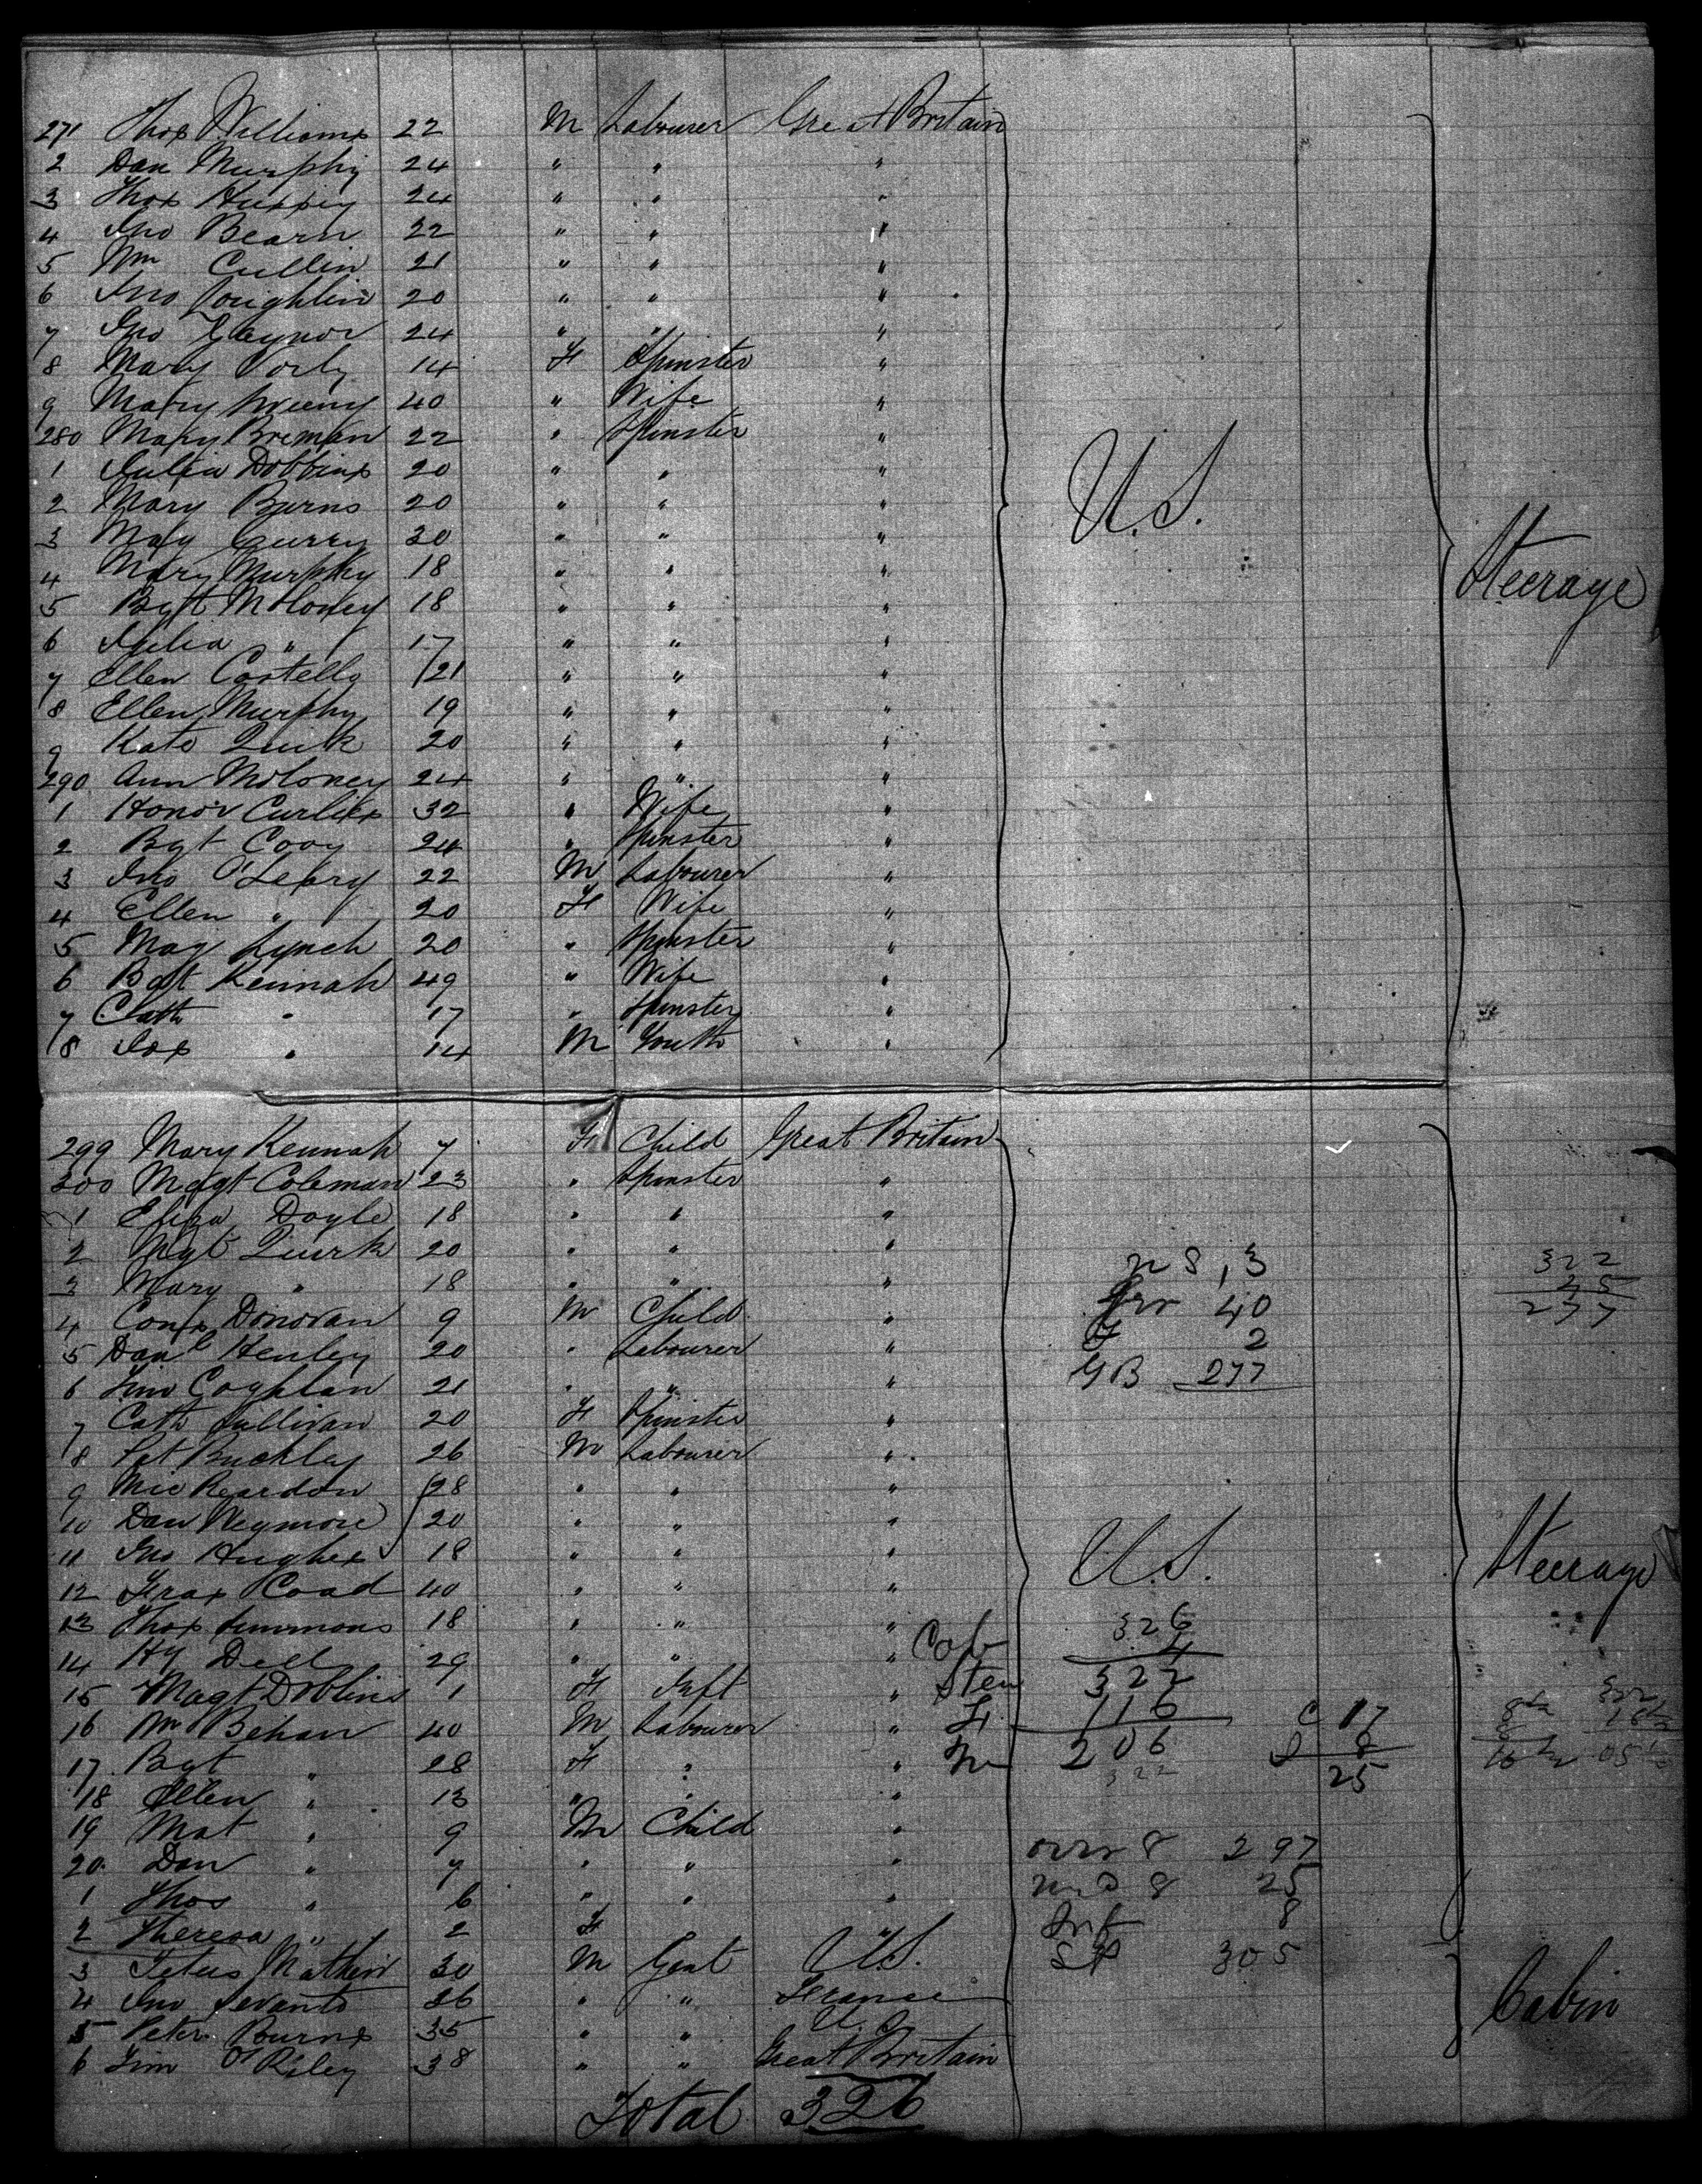 271 Thos Williams 22 M Labourer Great Britain
2 Dan Murphy 24 " " "
3 Thos Hussey 24 " " "
4 Jno Bearn 22 " " "
5 Wm Cullin 21 " " "
6 Jno Loughlin 20 " " "
7 Jno Gaynor 24 " " "
8 Mary 14 F Spinster "
9 Mary 40 " Wife "
280 Mary Brennan 22 " Spinster "
1 Julia Dobbins 20 " " "
2 Mary Burns 20 " " " U.S.
3 May Curry 20 " " "
4 Mary Murphy 18 " " " Steerage
5 Bgt Moloney 18 " " "
6 Julia " 17 " " "
7 Ellen Costello 21 " " "
8 Ellen Murphy 19 " " "
9 Kate Quirk 20 " " "
290 Ann Moloney 24 " " "
1 Honor 32 " Wife "
2 Bgt 24 " Spinster "
3 Jno O'Leary 22 M Labourer "
4 Ellen " 20 F Wife "
5 Mag Lynch 20 " Spinster "
6 Bgt Kennah 49 " Wife "
7 Cath " 17 " Spinster "
8 Jos " 14 M Youth "
299 Mary Kennah 7 F Child Great Britain
300 Magt Coleman 23 " Spinster "
1 Eliza Doyle 18 " " "
2 Mgt Quirk 20 " " " 3 322
3 Mary " 18 " " " 40 45
4 Cons Donovan 9 M Child " 2 277
5 Danl Henley 20 " Labourer " GB 277
6 Tim Coghlan 21 " " "
7 Cath Sullivan 20 F Spinster "
8 Pat Buckley 26 M Labourer "
9 Mic Reardon 28 " " "
10 Dan 20 " " "
11 Jno Hughes 18 " " " U.S. Steerage
12 Fras Coad 40 " " "
13 Thos Simmons 18 " " " 326
14 Hy Dell 29 " " " Cab 4
15 Magt Doblins 1 F Inft " Stee 322
16 Wm Behan 40 M Labourer " F 116 C 17
17 Bgt " 28 F " " M 206 S 8
18 Ellen " 13 " " " 25
19 Mat " 9 M Child "
20 Dan " 7 " " " over 8 297
1 Thos " 6 " " " 8 25
2 Theresa " 2 F " Inf 8
3 30 M Gent U.S. 305
4 Jno 36 " " France Cabin
5 Peter Bourns 35 " " U.S.
6 Tim O'Riley 38 " " Great Britain
Total 326